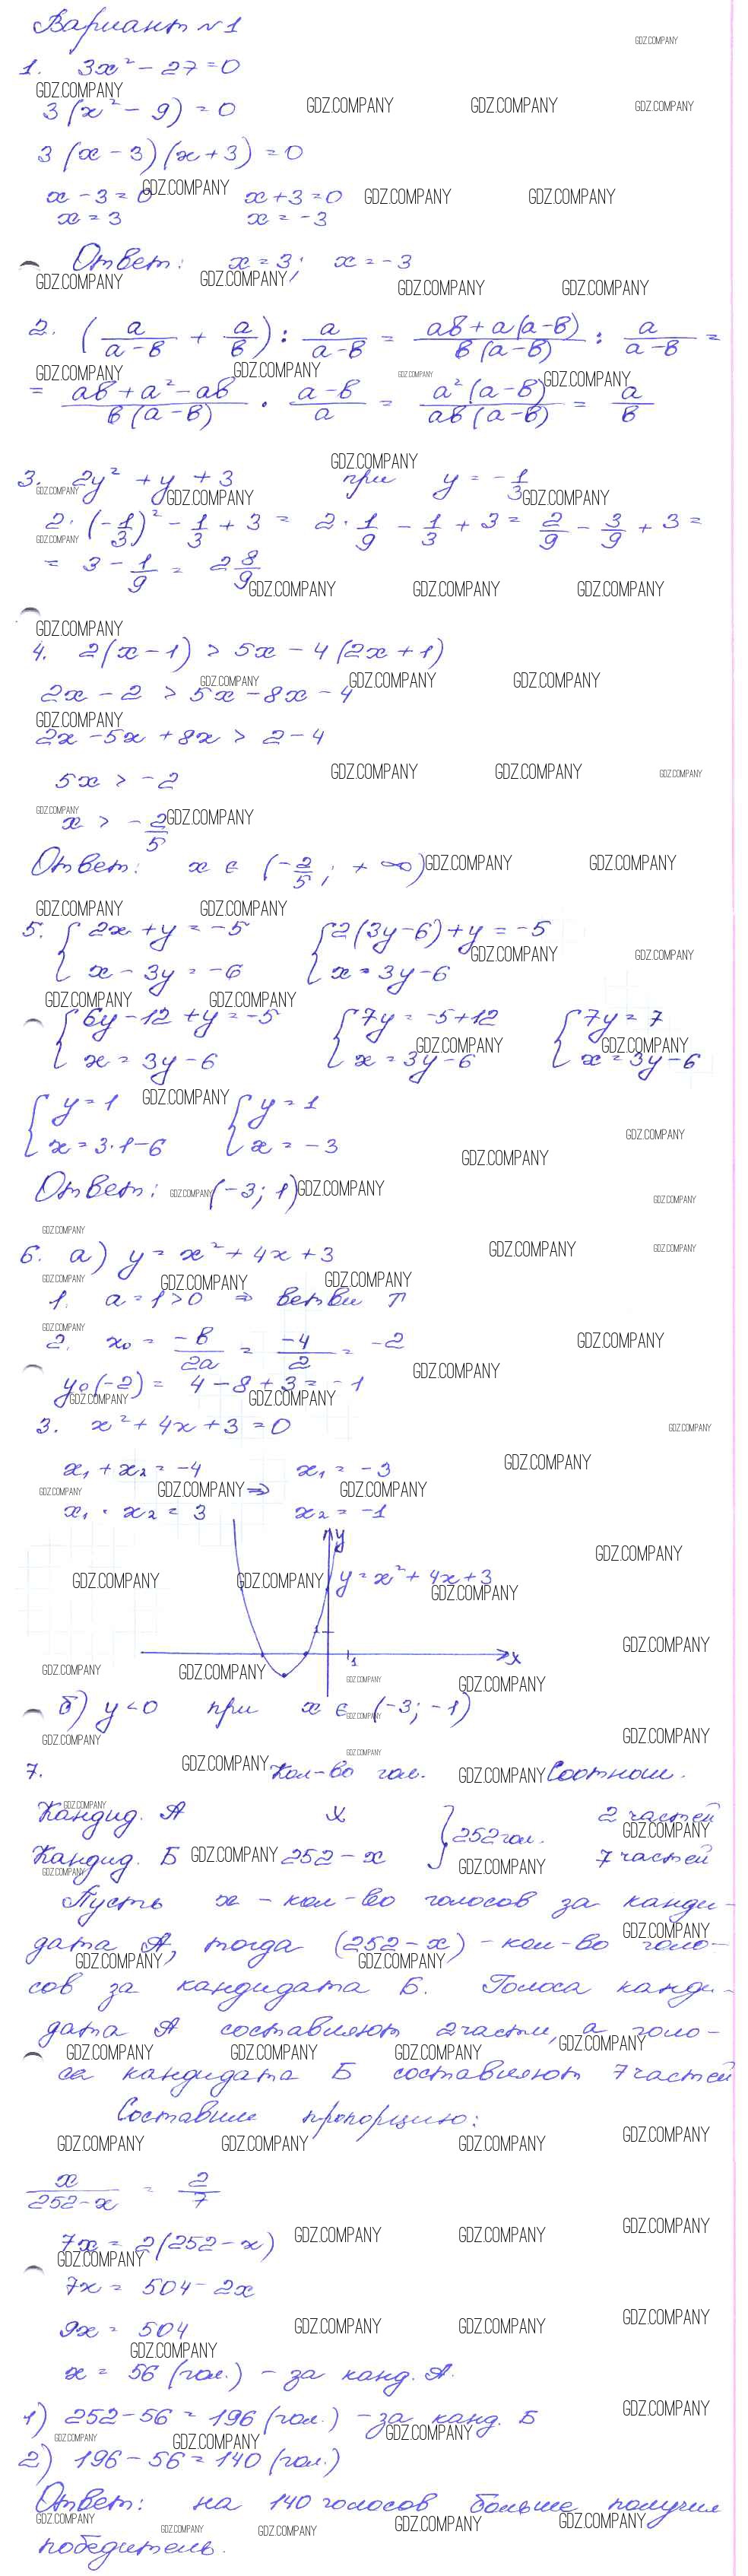 Вариант №1
1. 3x² - 27 = 0
3(x² - 9) = 0
3(x - 3)(x + 3) = 0
x - 3 = 0 x + 3 = 0
x = 3 x = -3
Ответ: x = 3; x = -3
2. (a/(a-в) + a/в) : a/(a-в) = (aв + a(a-в))/(в(a-в)) : a/(a-в) =
= (aв + a² - aв)/(в(a-в)) · (a-в)/a = a²(a-в)/(aв(a-в)) = a/в
3. 2y² + y + 3 при y = -1/3
2·(-1/3)² - 1/3 + 3 = 2·1/9 - 1/3 + 3 = 2/9 - 3/9 + 3 =
= 3 - 1/9 = 2 8/9
4. 2(x-1) > 5x - 4(2x+1)
2x - 2 > 5x - 8x - 4
2x - 5x + 8x > 2 - 4
5x > -2
x > -2/5
Ответ: x ∈ (-2/5; +∞)
5. { 2x + y = -5 { 2(3y-6) + y = -5
x - 3y = -6 x = 3y - 6
{ 6y - 12 + y = -5 { 7y = -5 + 12 { 7y = 7
x = 3y - 6 x = 3y - 6 x = 3y - 6
{ y = 1 { y = 1
x = 3·1 - 6 x = -3
Ответ: (-3; 1)
6. а) y = x² + 4x + 3
1. a = 1 > 0 ⇒ ветви ↑
2. x₀ = -в/2a = -4/2 = -2
y₀(-2) = 4 - 8 + 3 = -1
3. x² + 4x + 3 = 0
x₁ + x₂ = -4 x₁ = -3
⇒
x₁ · x₂ = 3 x₂ = -1
y
y = x² + 4x + 3
1
1 x
б) y < 0 при x ∈ (-3; -1)
7. Кол-во гол. Соотнош.
Кандид. А x } 252 гол. 2 частей
Кандид. Б 252 - x 7 частей
Пусть x - кол-во голосов за канди-
дата А, тогда (252-x) - кол-во голо-
сов за кандидата Б. Голоса канди-
дата А составляют 2 части, а голо-
са кандидата Б составляют 7 частей
Составим пропорцию:
x/(252-x) = 2/7
7x = 2(252-x)
7x = 504 - 2x
9x = 504
x = 56 (гол.) - за канд. А.
1) 252 - 56 = 196 (гол.) - за канд. Б
2) 196 - 56 = 140 (гол.)
Ответ: на 140 голосов больше получил
победитель.
GDZ.COMPANY